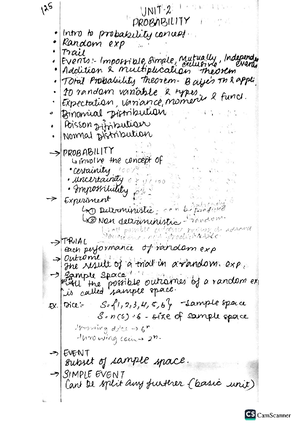 125
UNIT-2
PROBABILITY
• Intro to probability concept
• Random exp
• Trail
• Events:- Impossible, Simple, Mutually exclusive, Independent Events
• Addition & Multiplication Theorem
• Total Probability Theorem. Bayes Th & appli
• 2D random variable & types
• Expectation, Variance, moment & funct.
• Binomial Distribution
• Poisson Distribution
• Normal Distribution
→ PROBABILITY
↳ involve the concept of
• certainity
• uncertainity
• Impossibility
→ Experiment
① Deterministic
② Non deterministic
→ TRIAL
Each performance of random exp
→ Outcome
The result of a trial in a random. exp.
→ Sample Space
All the possible outcomes of a random ex
is called sample space.
Ex. Dice:- S={1,2,3,4,5,6} - Sample space
S=n(S)=6 - size of sample space
throwing dice → 6ⁿ
throwing coin → 2ⁿ
→ EVENT
Subset of sample space.
→ SIMPLE EVENT
Cant be split any further (basic unit)
CS CamScanner